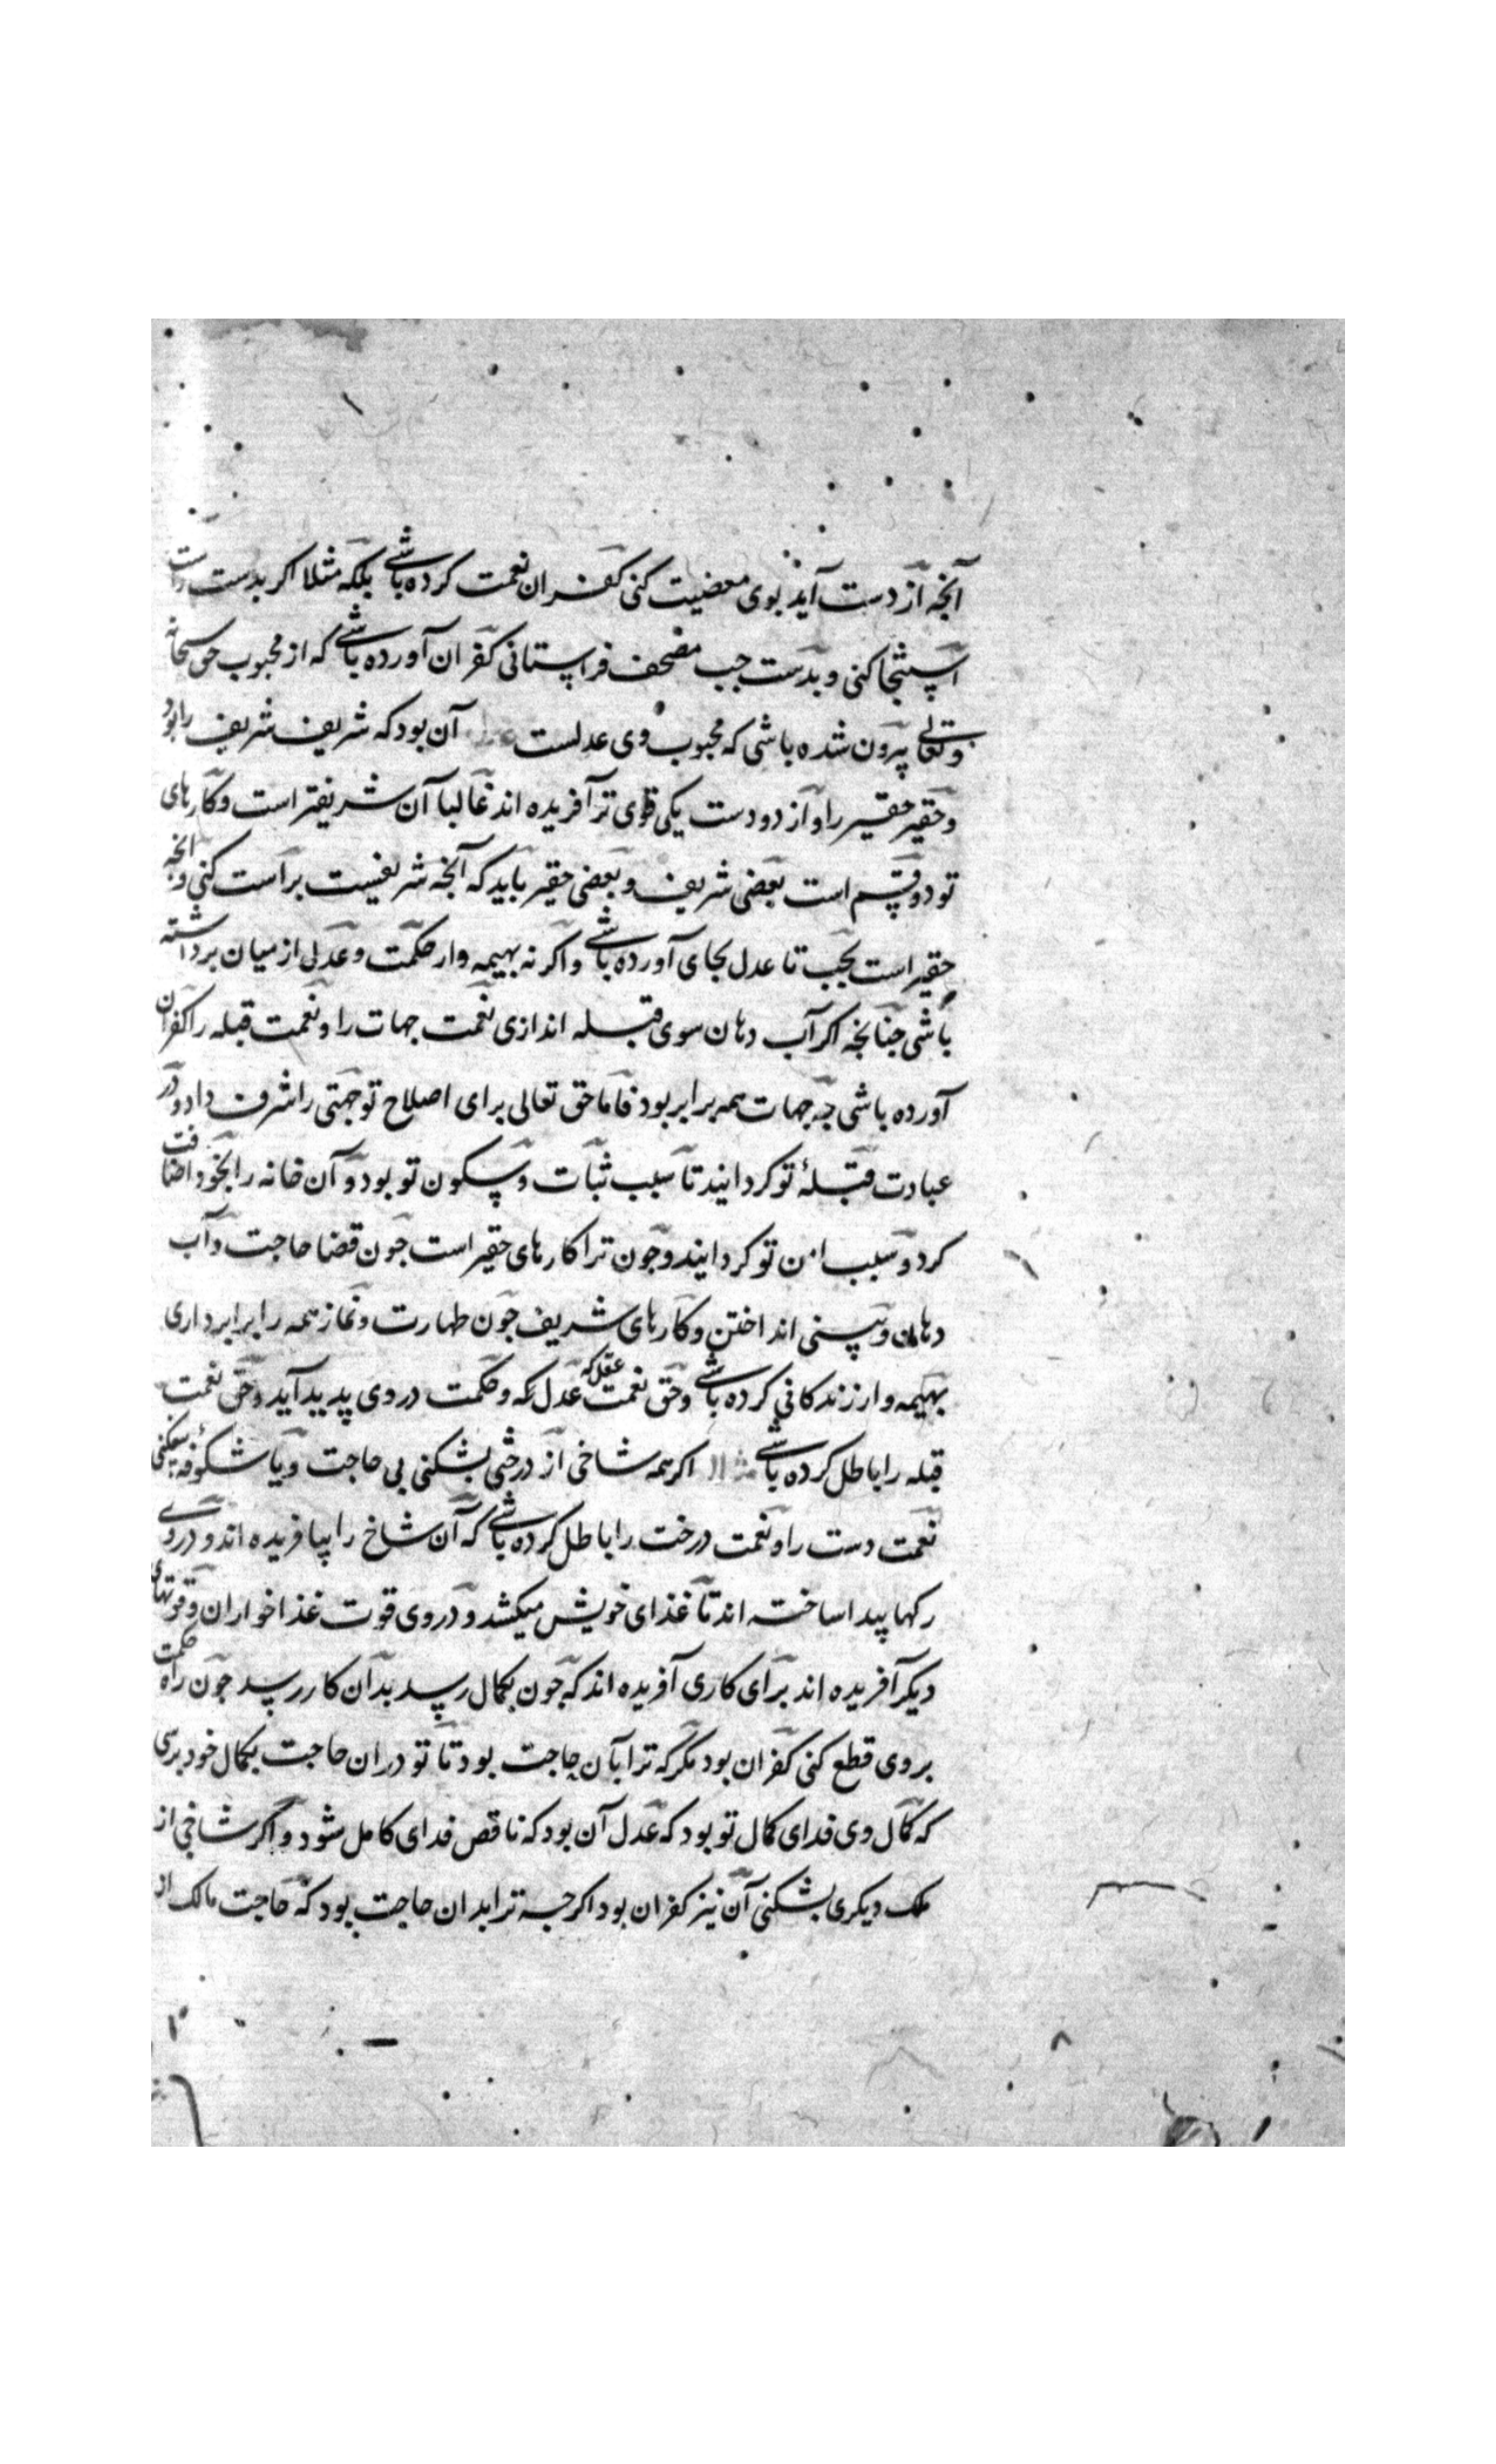 آنچه از دست آید بوی معصیت کنی کفران نعمت کرده باشی بلکه مثلا اکر بدست راست
استنجا کنی و بدست جب مصحف فراستانی کفران آورده باشی که از محبوب حق سبحانه
وتعالی بیرون شده باشی که محبوب وی عدلست عدل آن بود که شریف شریف را بود
و حقیر حقیر را و از دو دست یکی قوی تر آفریده اند غالبا آن شریفتر است و کارهای
تو دو قسم است بعضی شریف و بعضی حقیر باید که آنچه شریفست براست کنی و انچه
حقیر است بجب تا عدل بجای آورده باشی و اکر نه بهیمه وار حکمت و عدلی از میان برداشته
باشی جنانجه اکر آب دهان سوی قبله اندازی نعمت جهات را و نعمت قبله را کفران
آورده باشی جه جهات همه برابر بود فاما حق تعالی برای اصلاح تو جهتی را شرف داد و در
عبادت قبلهٔ تو کردانید تا سبب ثبات و سکون تو بود و آن خانه را بخود اضافت
کرد و سبب امن تو کردانید و جون ترا کارهای حقیر است جون قضا حاجت و آب
دهان و بینی انداختن و کارهای شریف جون طهارت و نماز همه را برابر داری
بهیمه وار زندکانی کرده باشی و حق نعمت عقل که عدل که و حکمت در وی پدید آید و حق نعمت
قبله را باطل کرده باشی مثلا اکر همه شاخی از درختی بشکنی بی حاجت و یا شکوفه بیفکنی
نعمت دست را و نعمت درخت را باطل کرده باشی که آن شاخ را بیافریده اند و در وی
رکها پیدا ساخته اند تا غذای خویش میکشد و در وی قوت غذا خواران و قوتهای
دیکر آفریده اند برای کاری آفریده اند که جون بکمال رسد بدان کار رسد جون راه حکمت
بر وی قطع کنی کفران بود مکر که ترا بآن حاجت بود تا تو دران حاجت بکمال خود برسی
که کمال وی فدای کمال تو بود که عدل آن بود که ناقص فدای کامل شود و اکر شاخی از
ملک دیکری بشکنی آن نیز کفران بود اکرجه ترا بدان حاجت بود که حاجت مالک از